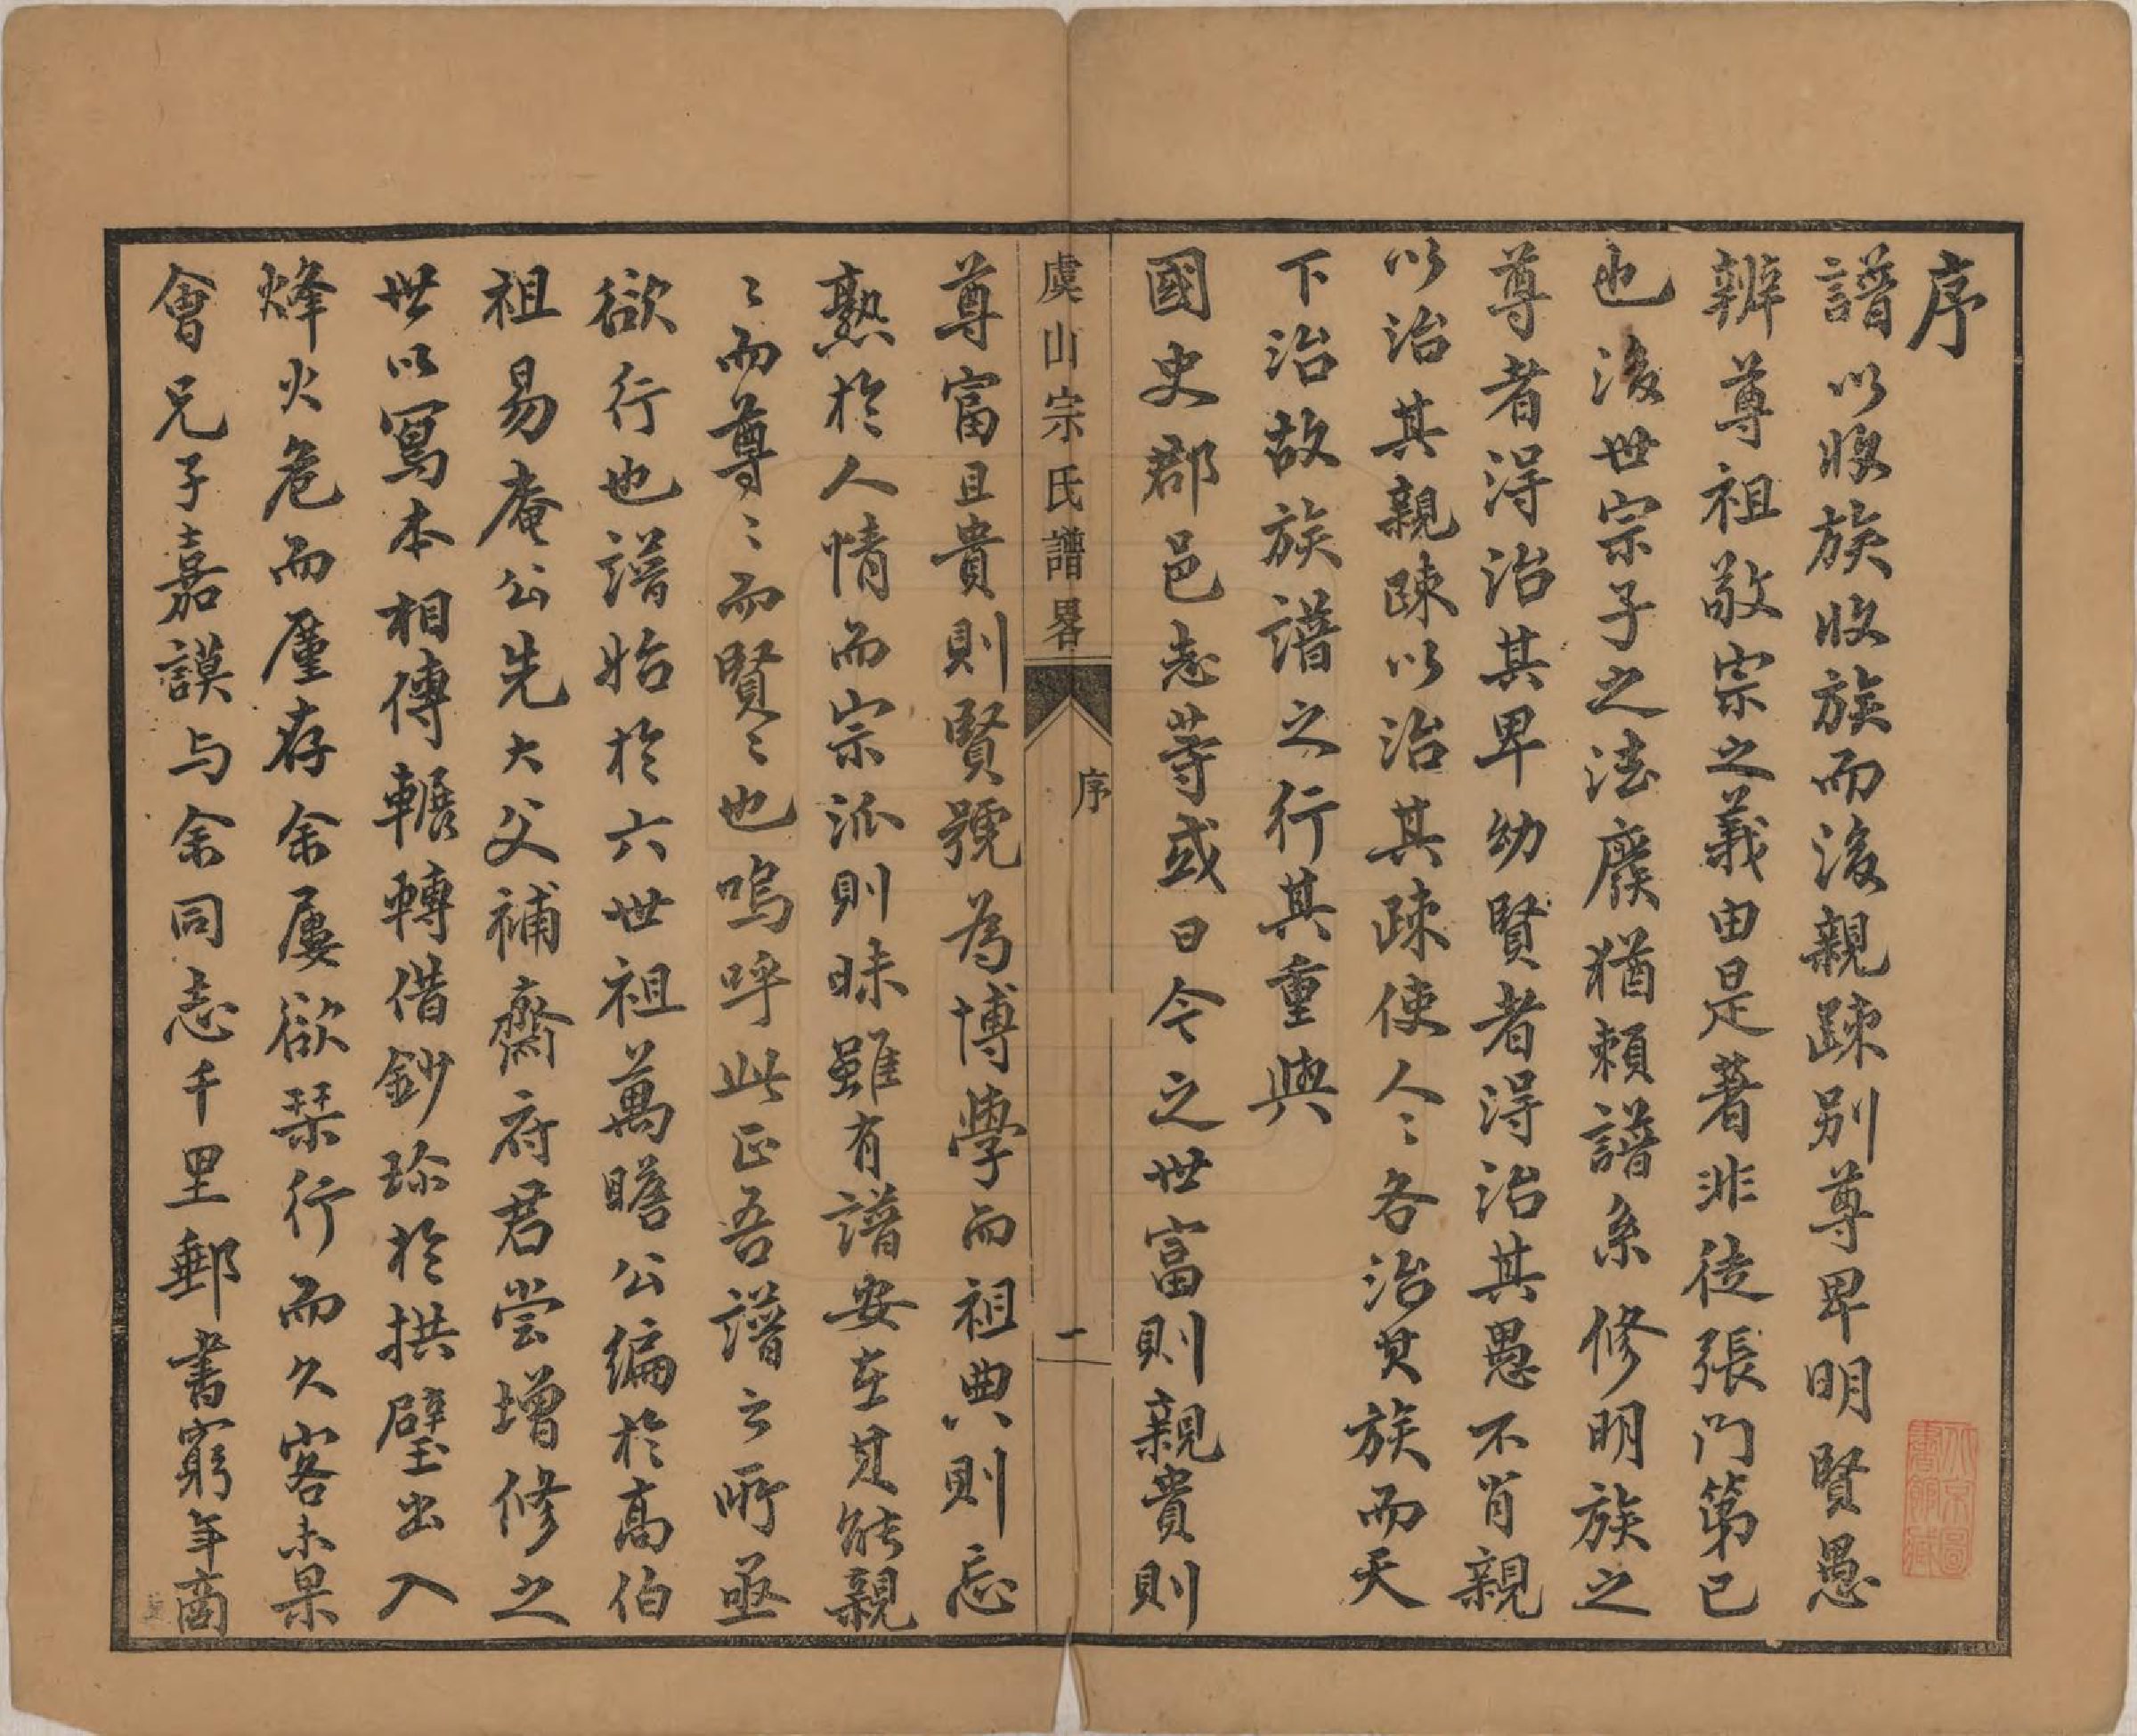 序
譜以收族收族而後親疎别尊卑明賢愚
辨尊祖敬宗之義由是著非徒張门第已
也後世宗子之法廢猶賴譜系修明族之
尊者得治其卑幼賢者得治其愚不肖親
以治其親疎以治其疎使人〻各治其族而天
下治故族譜之行其重與
國史郡邑志等或曰今之世富則親貴則
虞山宗氏譜畧
序
一
尊富且貴則賢號為博學而祖典則忘
熟於人情而宗派則昧雖有譜安在其能親
〻而尊〻而賢〻也嗚呼此正吾譜之所亟
欲行也譜始於六世祖萬瞻公編於高伯
祖易庵公先大父補齋府君嘗增修之
世以寫本相傳輾轉借鈔珍於拱璧出入
烽火危而廑存余屢欲栞行而久客未果
會兄子嘉謨与余同志千里郵書窮年商
北京圖
書館藏